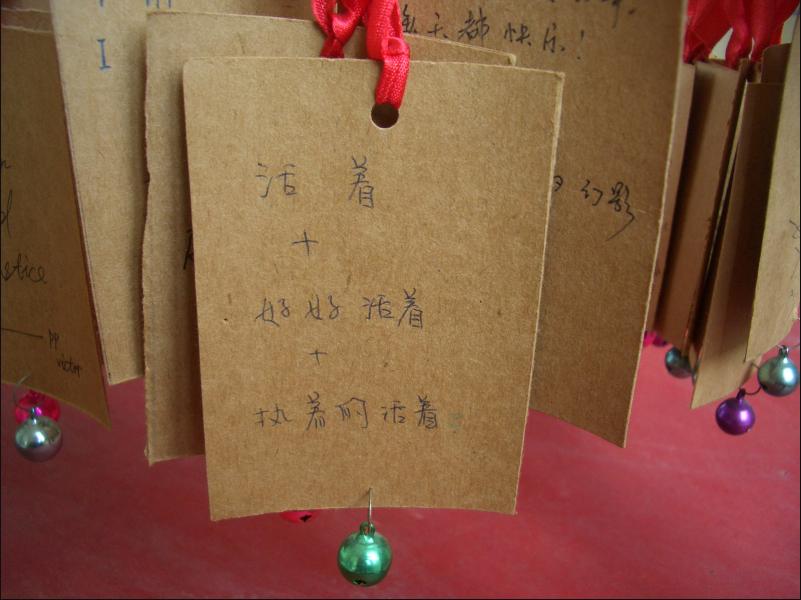 活着
+
好好活着
+
执着的活着
天都快乐!
幻影
I
pp
victor